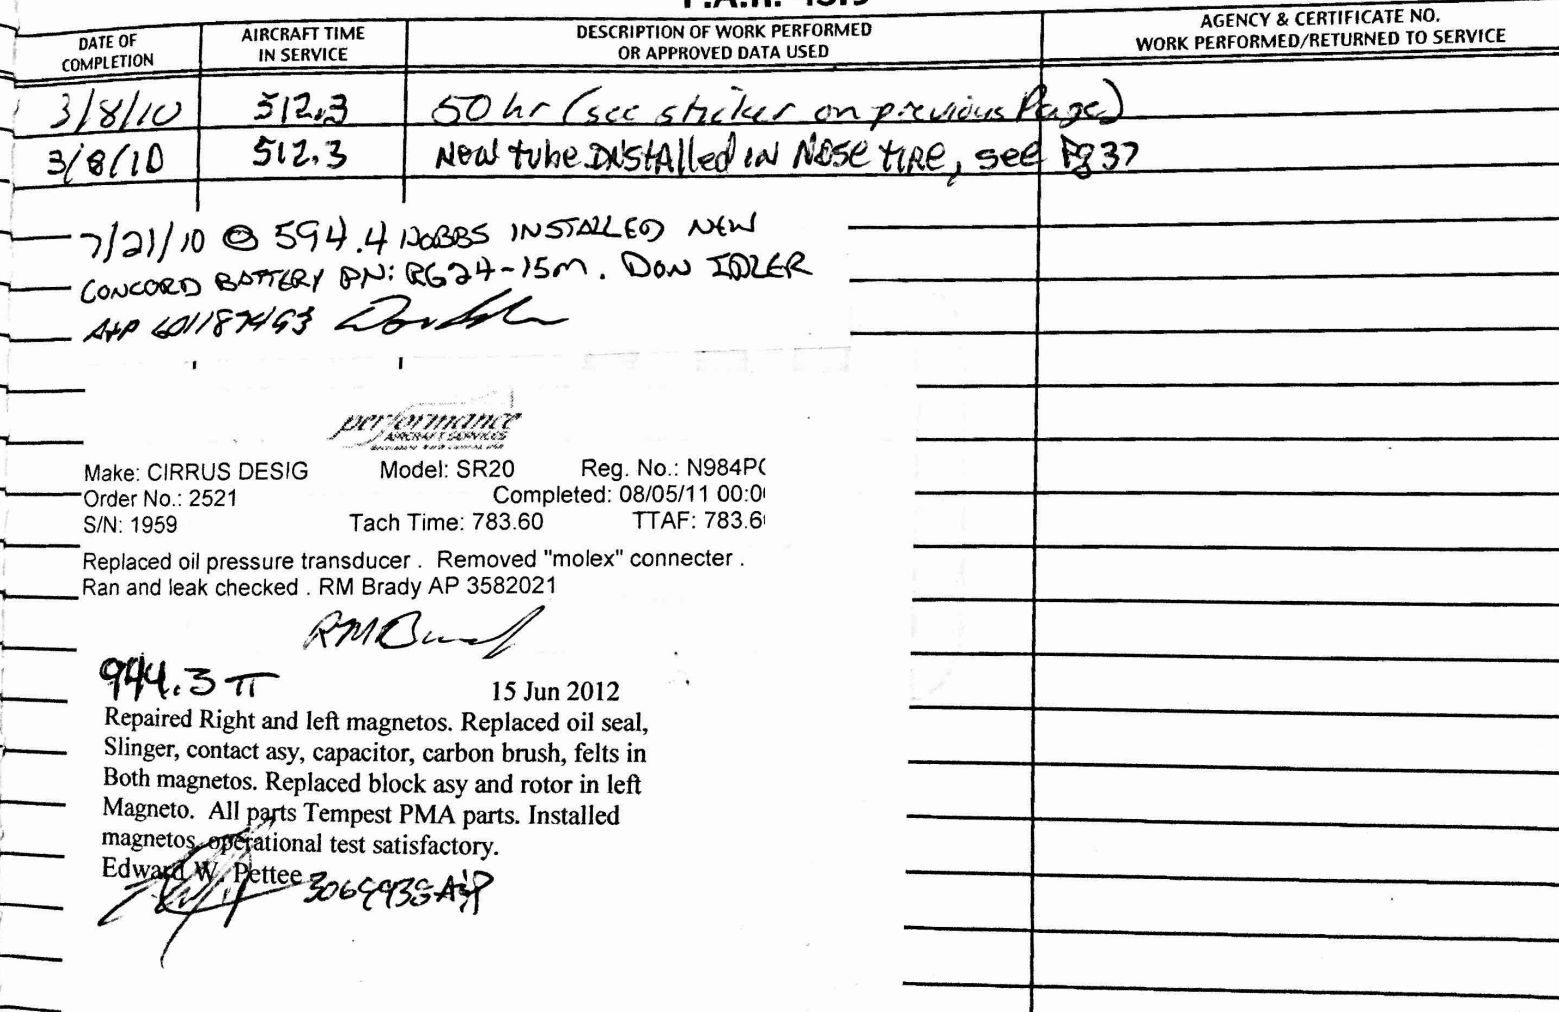 F.A.R. 43.9
DATE OF COMPLETION
AIRCRAFT TIME IN SERVICE
DESCRIPTION OF WORK PERFORMED OR APPROVED DATA USED
AGENCY & CERTIFICATE NO. WORK PERFORMED/RETURNED TO SERVICE
3/8/10 512.3 50 hr (see sticker on previous Page)
3/8/10 512.3 New tube INstAlled iN NOSE tIRE, see Pg 37
7/21/10 @ 594.4 HOBBS INSTALLED NEW
CONCORD BATTERY PN: RG24-15M. DON IDLER
A+P
performance
AIRCRAFT SERVICES
Make: CIRRUS DESIG Model: SR20 Reg. No.: N984P
Order No.: 2521 Completed: 08/05/11 00:0
S/N: 1959 Tach Time: 783.60 TTAF: 783.6
Replaced oil pressure transducer . Removed "molex" connecter .
Ran and leak checked . RM Brady AP 3582021
944.3 TT 15 Jun 2012
Repaired Right and left magnetos. Replaced oil seal,
Slinger, contact asy, capacitor, carbon brush, felts in
Both magnetos. Replaced block asy and rotor in left
Magneto. All parts Tempest PMA parts. Installed
magnetos, operational test satisfactory.
Edward W. Pettee
A&P